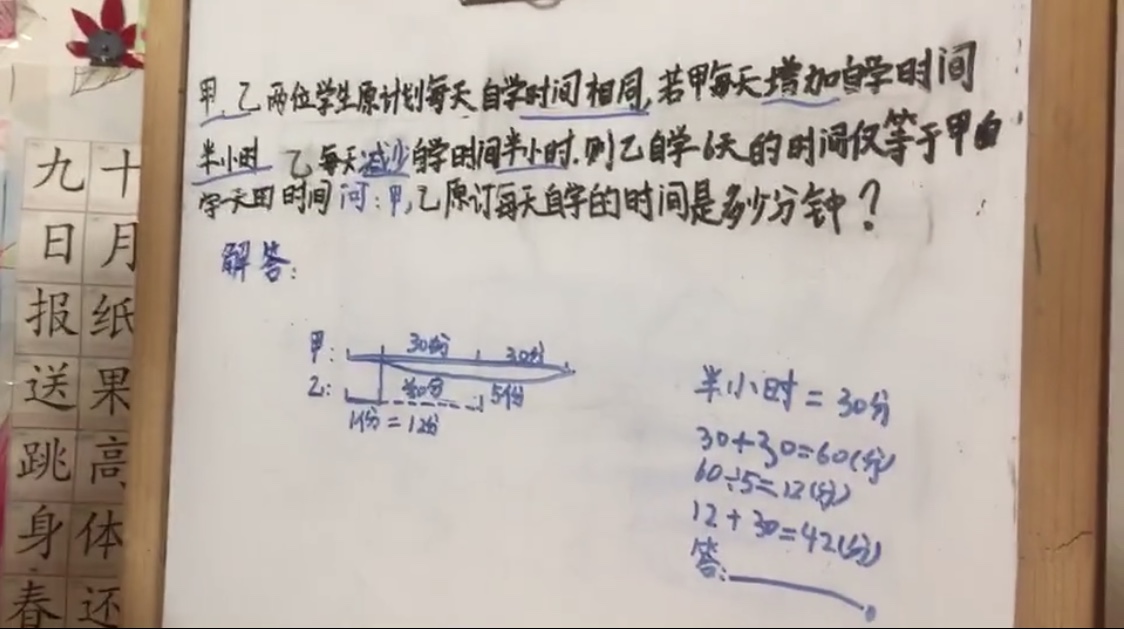 甲、乙两位学生原计划每天自学时间相同,若甲每天增加自学时间
半小时 乙每天减少自学时间半小时.则乙自学6天的时间仅等于甲自
学一天的时间 问:甲,乙原订每天自学的时间是多少分钟?
解答:
甲: 30分 30分
乙: 30分 5份
1份=12分
半小时=30分
30+30=60(分)
60÷5=12(分)
12+30=42(分)
答:
九十
日月
报纸
送果
跳高
身体
春还